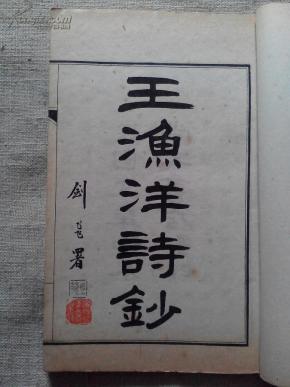 王漁洋詩鈔
劍飞署